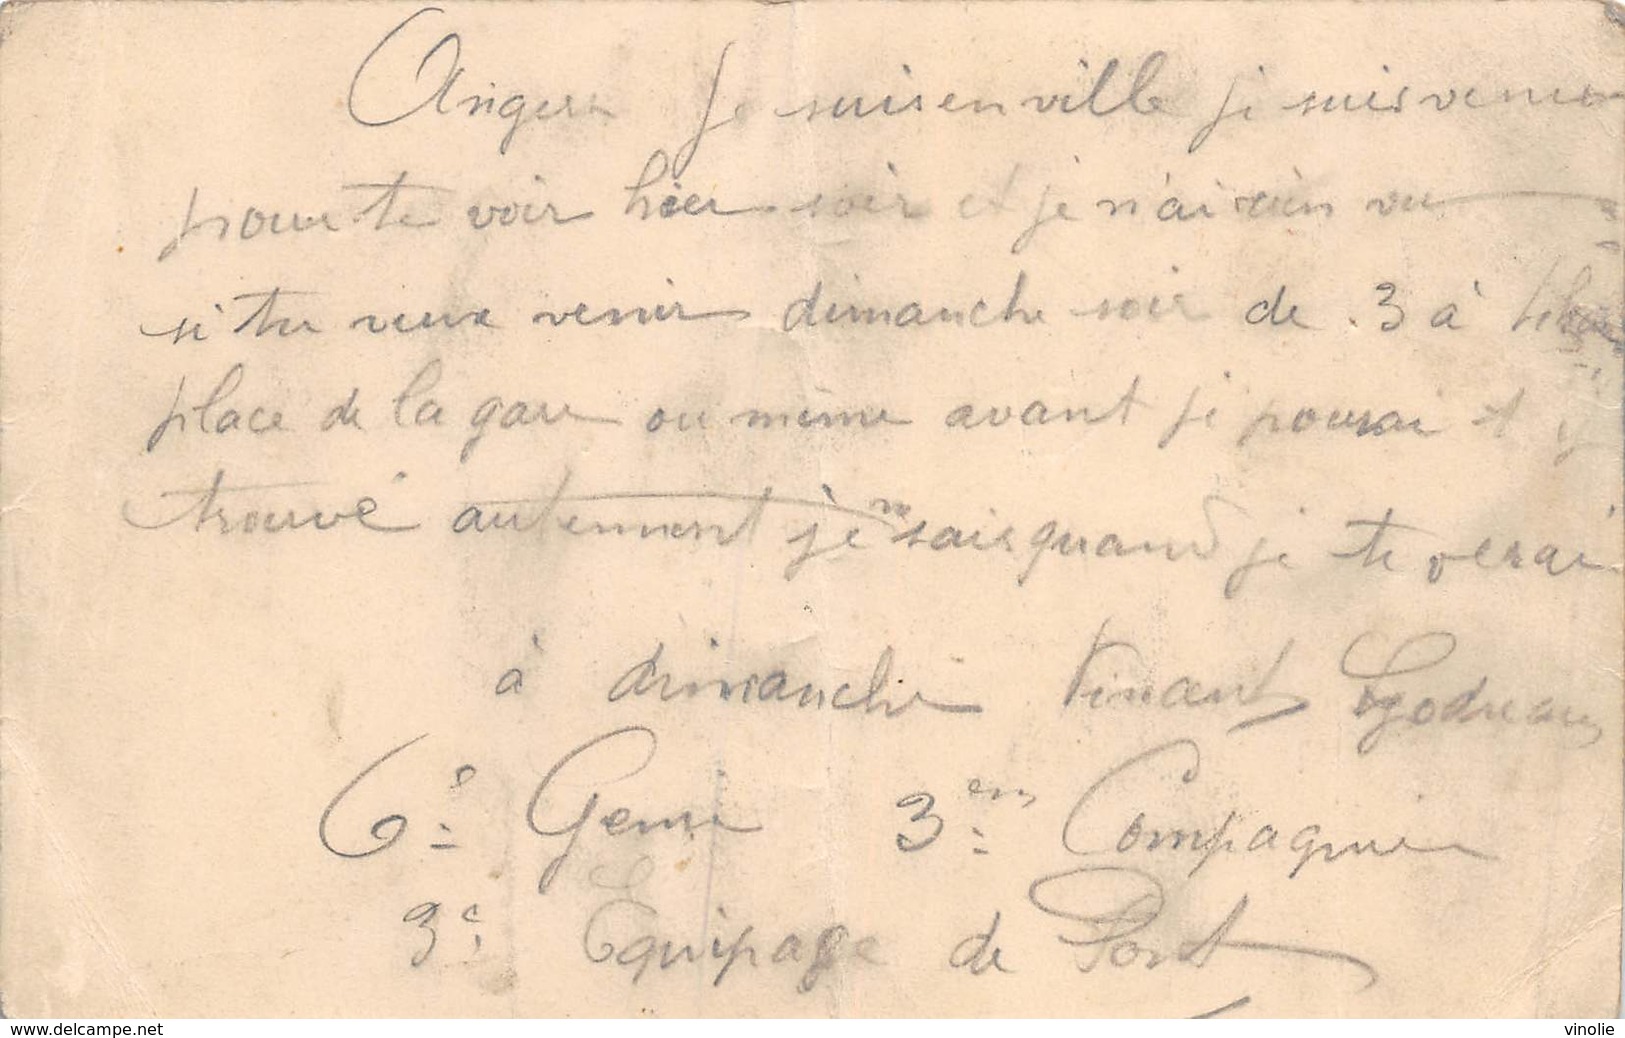 Angers je suis en ville je suis venu
pour te voir hier soir et je n'ai rien vu
si tu veux venir dimanche soir de 3 à
place de la gare ou même avant je pourai t y
trouvé autement je ne sais quand je te verai
à dimanche Vinant
6e Genie 3em Compagnie
3e Equipage de Pont
www.delcampe.net
vinolie